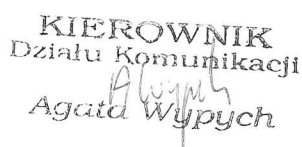 KIEROWNIK
Działu Komunikacji
Agata Wypych